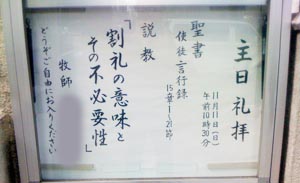 主日礼拝
11月11日(日)
午前10時30分
聖書
使徒言行録
15章1〜21節
説教
「割礼の意味と
その不必要性」
牧師
どうぞご自由にお入りください